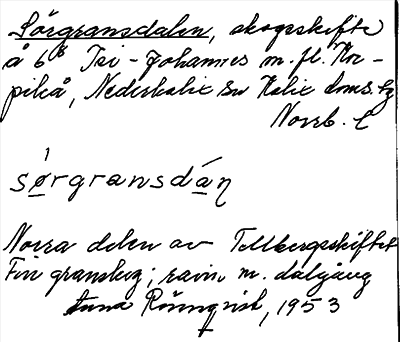 Sörgransdalen, skogsskifte
å 6⁸ Isi-Johannes m. fl. Kor-
pikå, Nederkalix sn Kalix doms. hg
Norrb. l
sørgransdán
Norra delen av Tellbergsskiftet
Fin granskog; ravin m. dalgång
Anna Rönnqvist, 1953